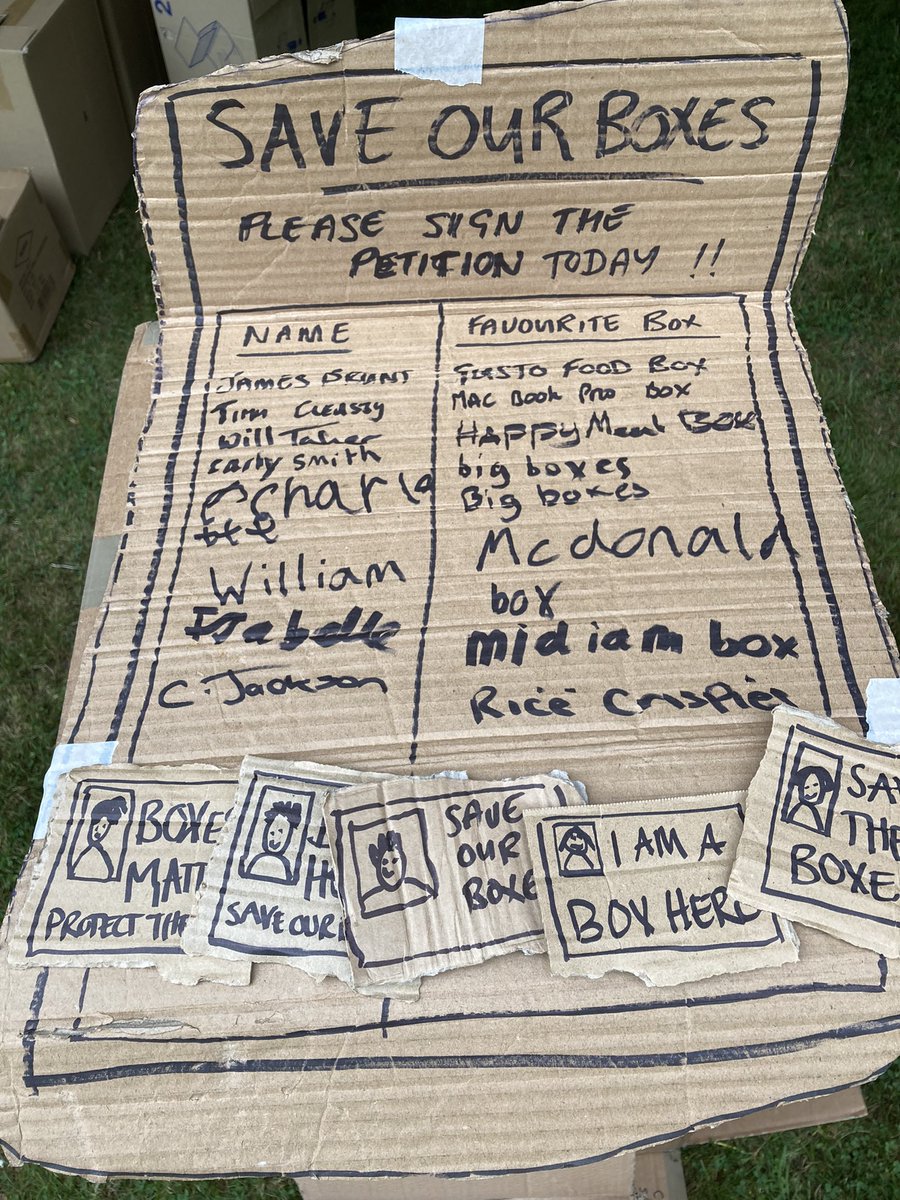 SAVE OUR BOXES
PLEASE SIGN THE
PETITION TODAY !!
NAME
FAVOURITE BOX
JAMES BRIANT
GUSTO FOOD BOX
Tim Cleasby
MAC Book Pro BOX
Will
HAPPY Meal Box
carly smith
big boxes
Charlo
tte
Big boxes
William
Mcdonald
box
Isabelle
midiam box
C. Jackson
Rice Crispies
BOXES
MATT
PROTECT THE
SAVE OUR
SAVE
OUR
BOXE
I AM A
BOX HERO
SAV
THE
BOXE